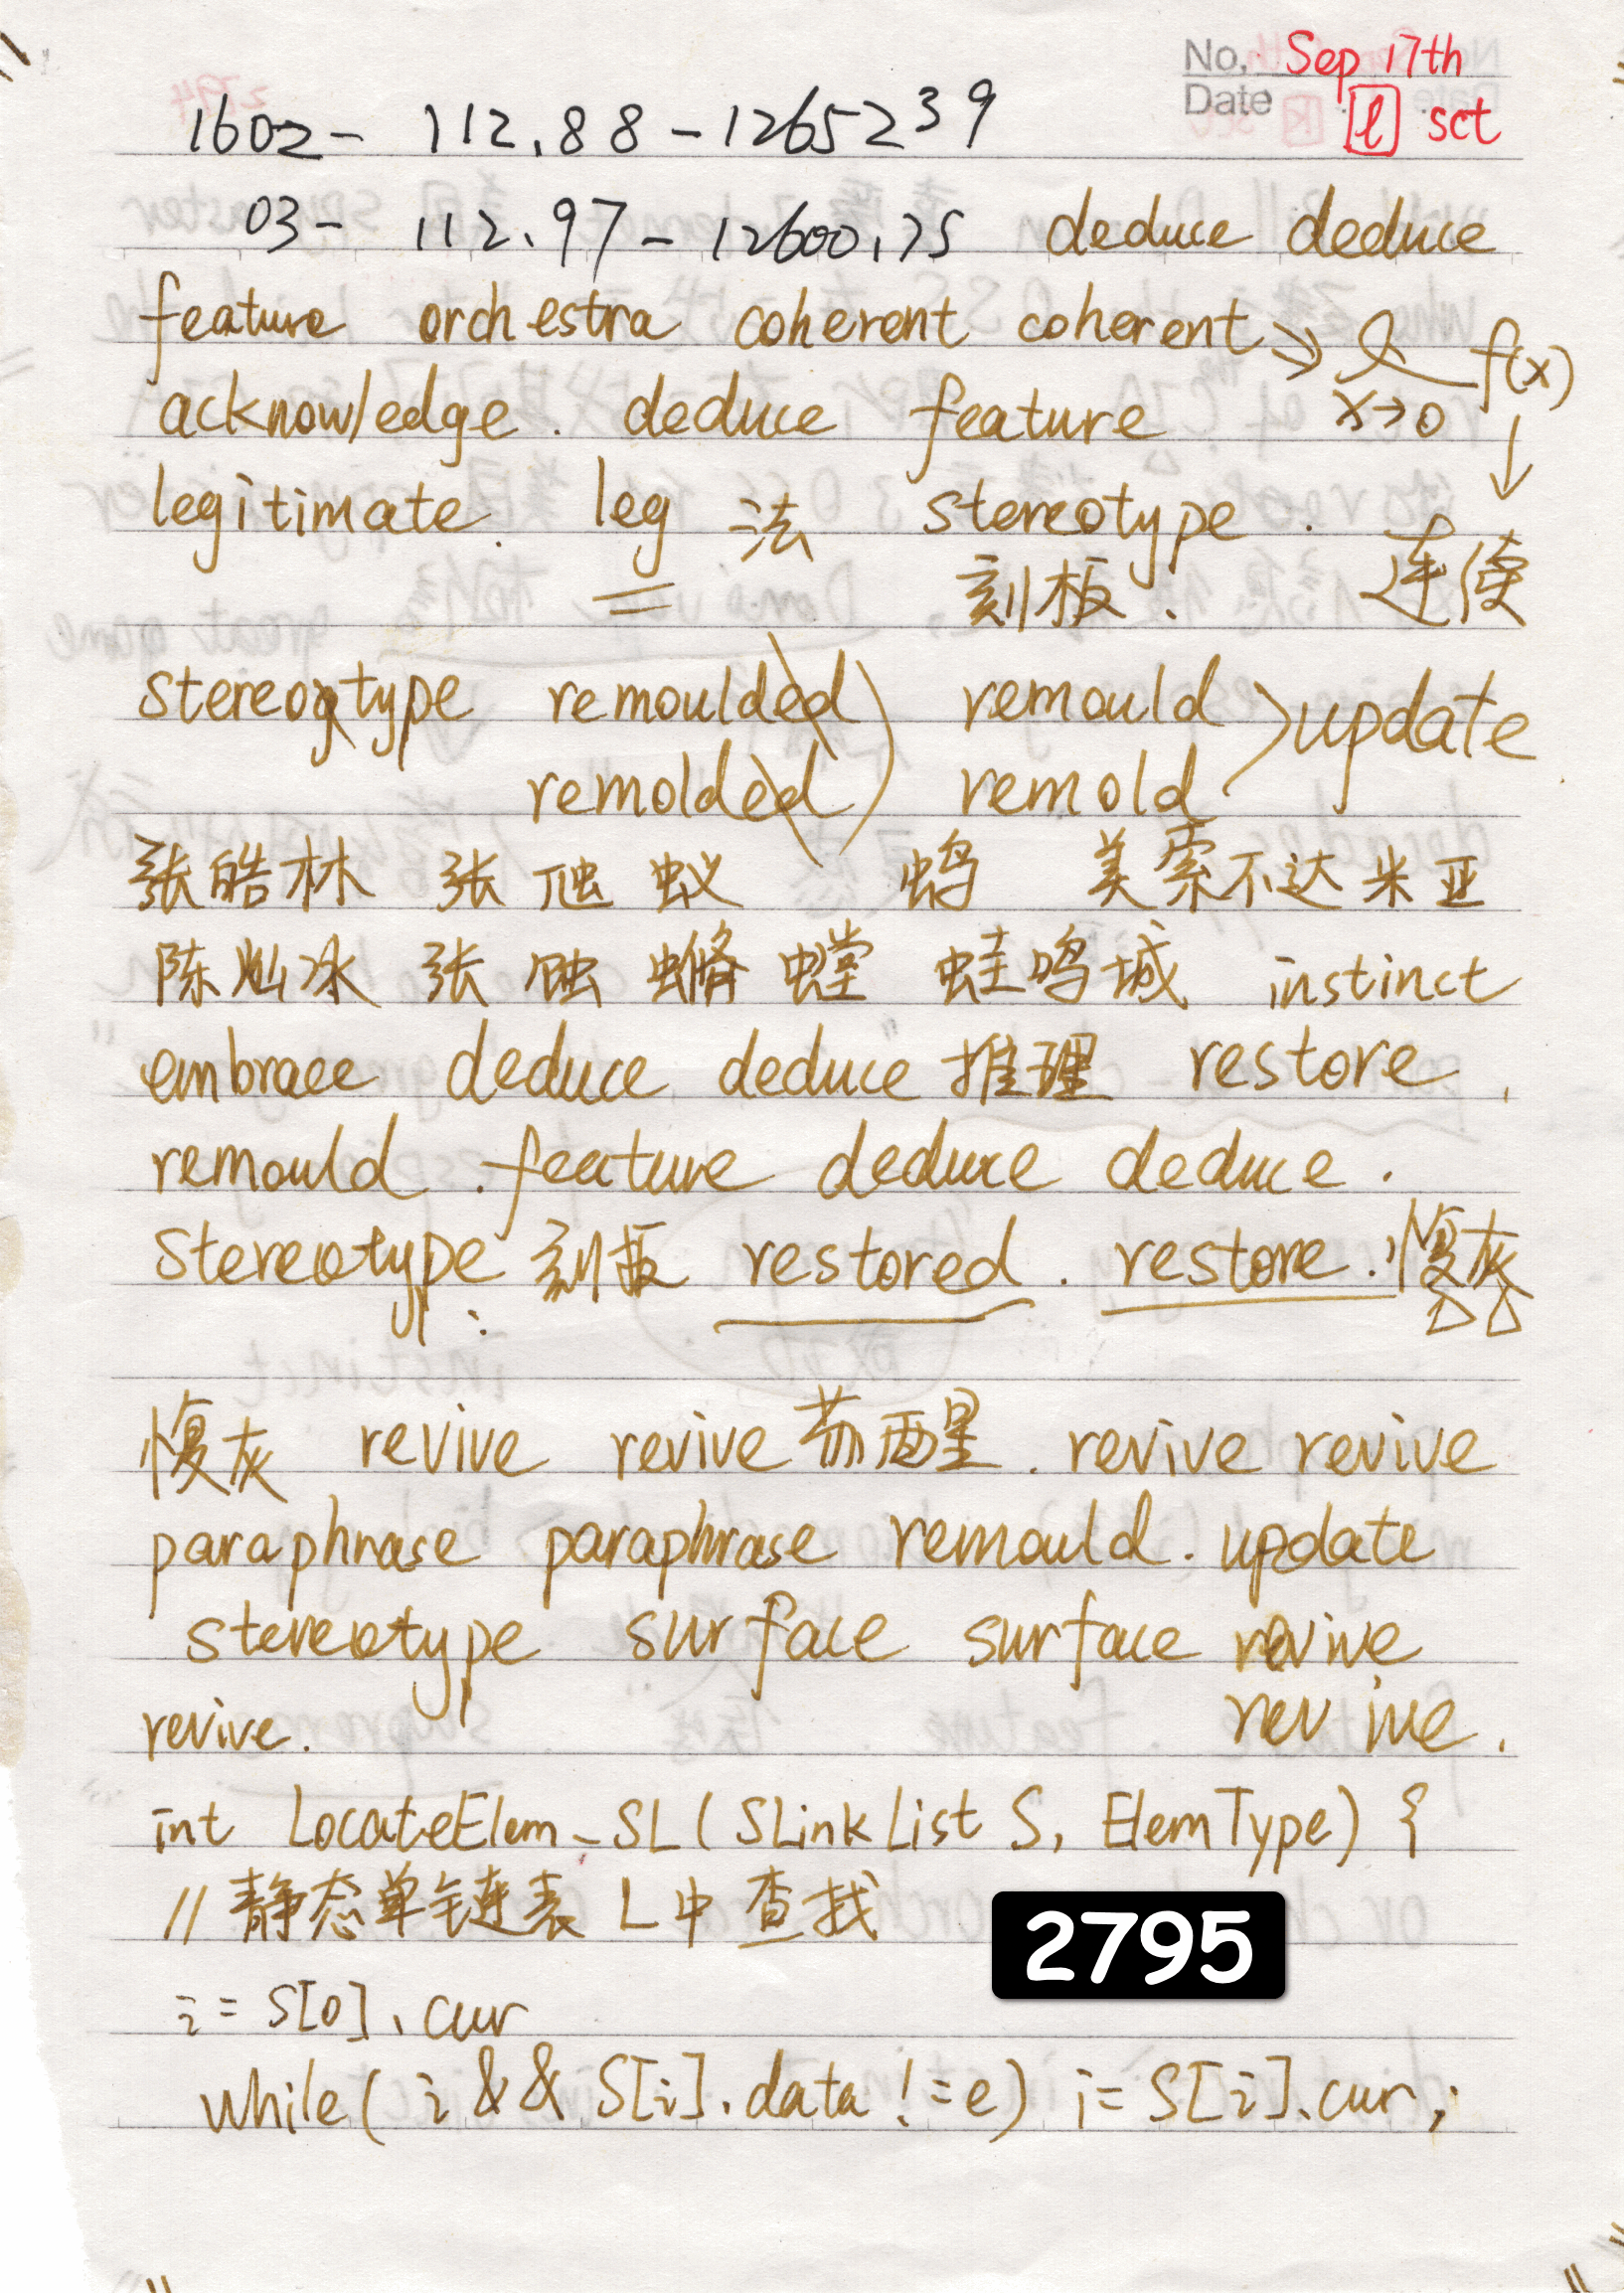 No. Sep 17th
Date l sct
1602- 112.88-1265239
03- 112.97-12600.75 deduce deduce
feature orchestra coherent coherent → x→0 f(x)
acknowledge. deduce feature
legitimate. leg 法 stereotype.
刻板. 连续
stereotype remoulded remould update
remolded remold
张皓林 张 蚁 美索不达米亚
陈灿冰 张 蚀 螳 蛙鸣城 instinct
embrace deduce deduce 推理 restore.
remould. feature deduce deduce.
stereotype 刻板 restored. restore.
revive revive revive revive
paraphrase paraphrase remould. update
stereotype surface surface revive
revive. revive.
int LocateElem_SL(SLinkList S, ElemType) {
//静态单链表L中查找
2795
i = S[0].cur
while( i && S[i].data != e) i = S[i].cur;